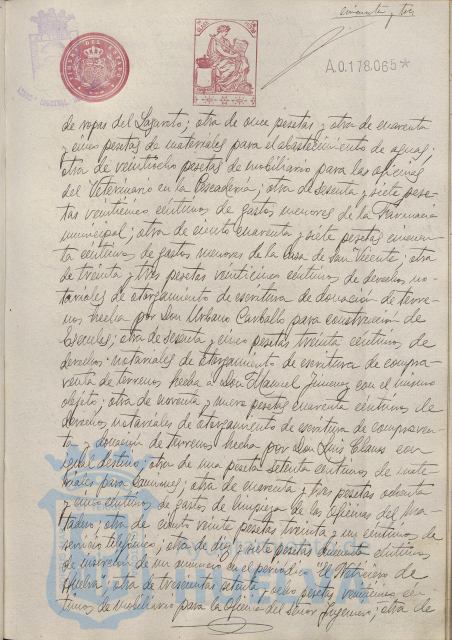 cincuenta y tres
A.0.178.065*
de ropas del Lazareto; otra de once pesetas y otra de cuarenta
y cinco pesetas de materiales para el abastecimiento de aguas;
otra de veintiocho pesetas de mobiliario para las oficinas
del Veterinario en la Pescadería; otra de sesenta y siete pese-
tas veinticinco céntimos de gastos menores de la Farmacia
municipal; otra de ciento cuarenta y siete pesetas cincuen-
ta céntimos de gastos menores de la Casa de San Vicente; otra
de treinta y tres pesetas veinticinco céntimos de derechos no-
tariales de otorgamiento de escritura de donación de terre-
nos hecha por Don Urbano Carballo para construcción de
Escuelas; otra de sesenta y cinco pesetas treinta céntimos de
derechos notariales de otorgamiento de escritura de compra-
venta de terrenos hecha a Don Manuel Jimenez con el mismo
objeto; otra de noventa y nueve pesetas cuarenta céntimos de
derechos notariales de otorgamiento de escritura de compraven-
ta y donación de terrenos hecha por Don Luis Claros con
igual destino; otra de una peseta setenta céntimos de mate-
riales para caminos; otra de cuarenta y tres pesetas ochenta
y cinco céntimos de gastos de limpieza de las oficinas del Ma-
tadero; otra de ciento veinte pesetas treinta y un céntimos de
servicio telefónico; otra de diez y siete pesetas cincuenta céntimos
de inserción de un anuncio en el periódico "El Noticiero de
Huelva"; otra de trescientas setenta y ocho pesetas veinticinco cén-
timos de mobiliario para la Oficina del Señor Ingeniero; otra de